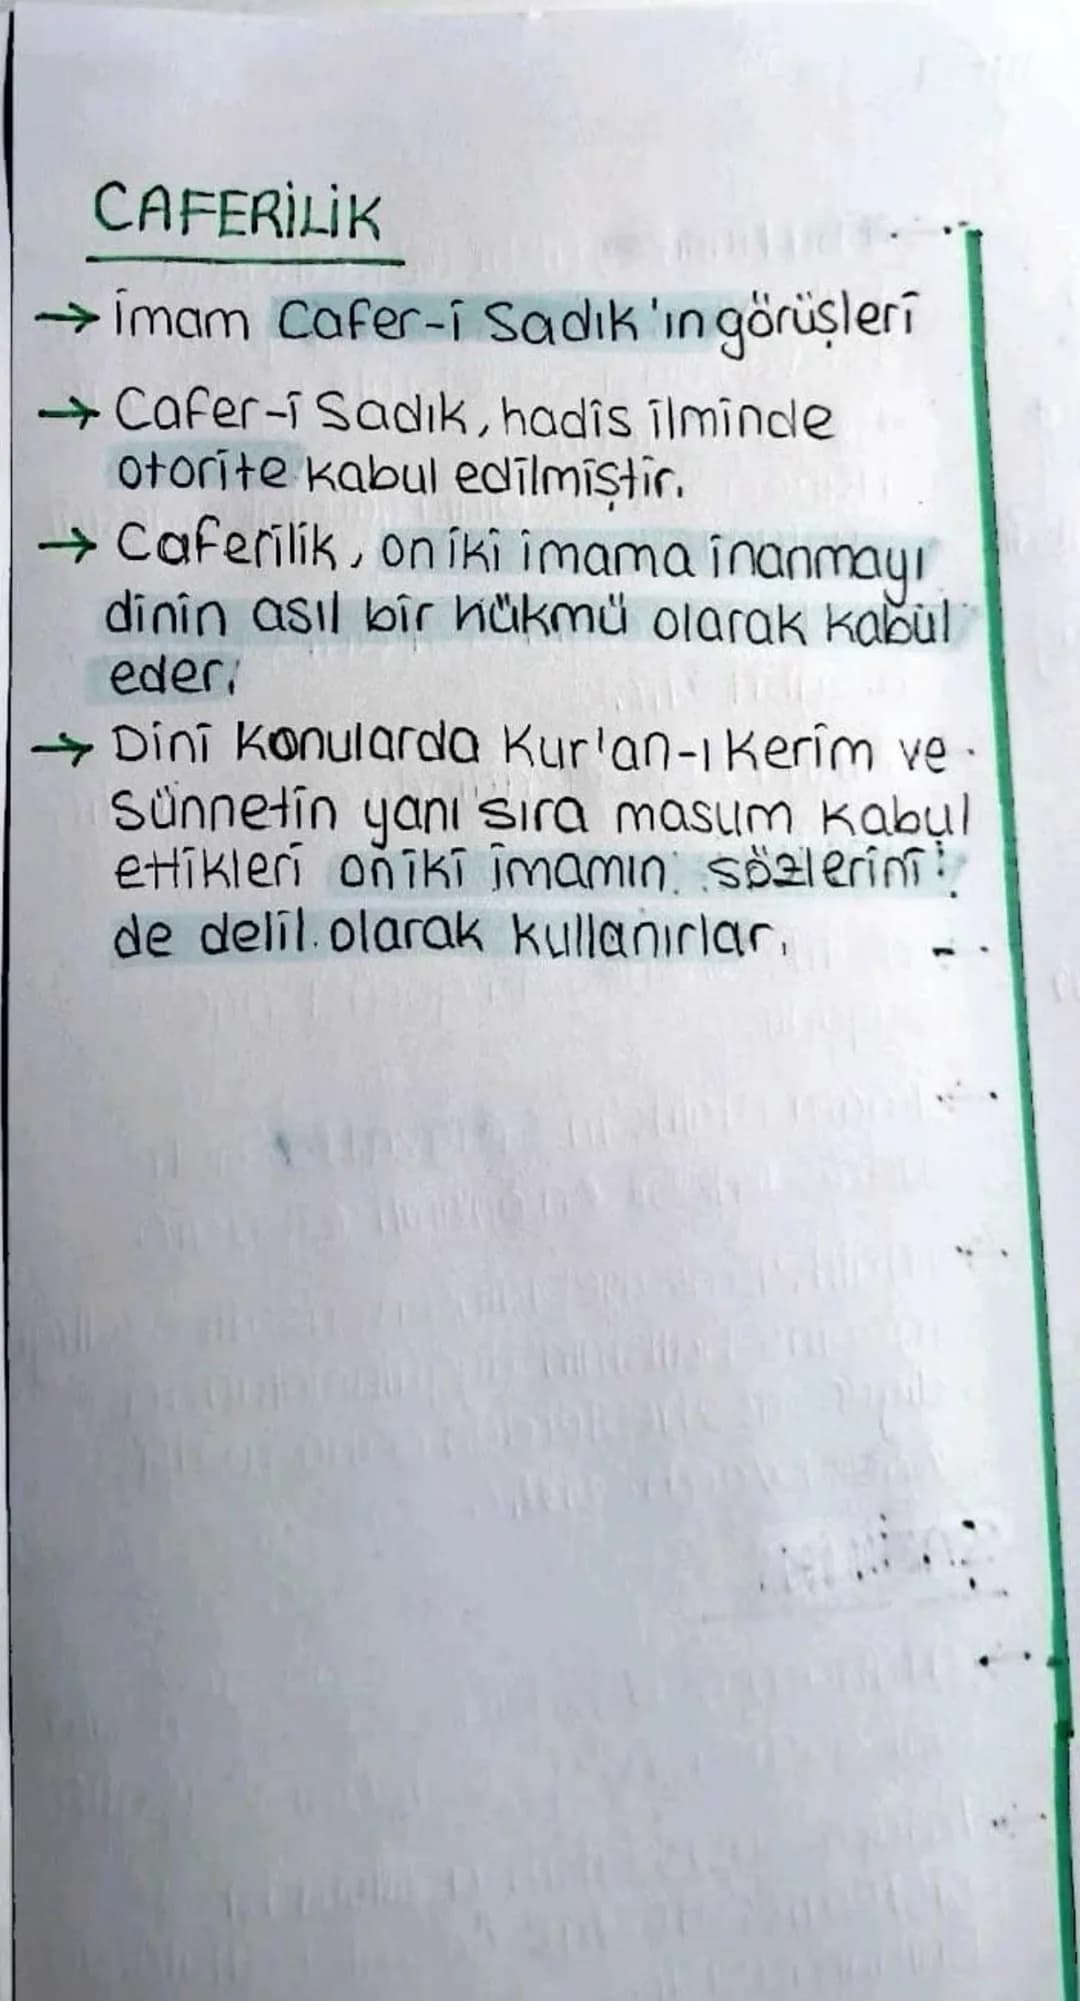 CAFERİLİK
→ İmam Cafer-i Sadık'ın görüşleri
→ Cafer-i Sadık, hadis ilminde
otorite kabul edilmiştir.
→ Caferilik, on iki imama inanmayı
dinin asıl bir hükmü olarak kabul
eder.
→ Dini konularda Kur'an-ı Kerim ve
Sünnetin yanı sıra masum kabul
ettikleri on iki imamın sözlerini
de delil olarak kullanırlar.